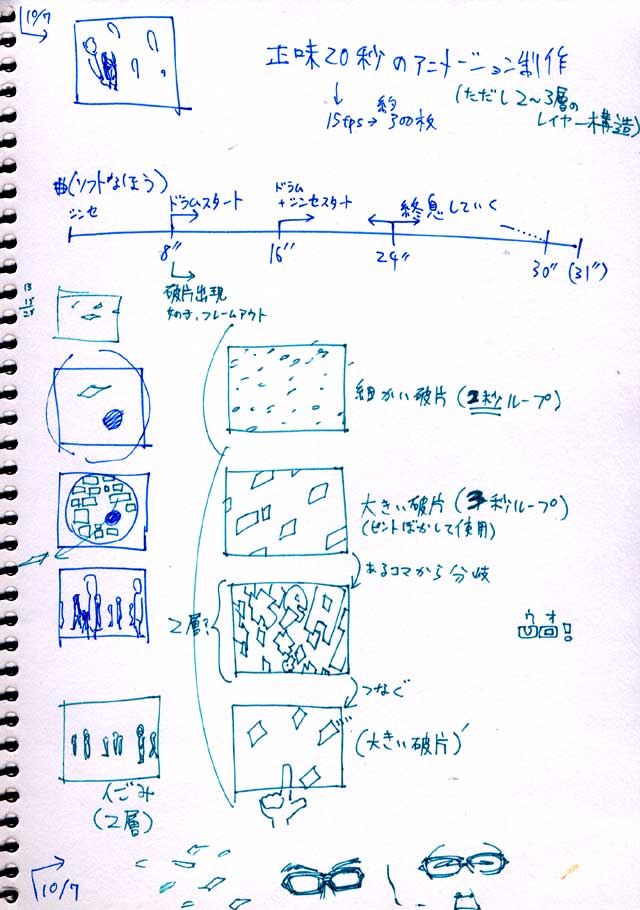 10/7
正味20秒のアニメーション制作
(ただし2〜3層の
レイヤー構造)
約
15fps→300枚
曲(ソフトなほう)
シンセ
ドラムスタート
ドラム
+シンセスタート
終息していく
8"
16"
24"
30"
(31")
破片出現
フレームアウト
細かい破片(2秒ループ)
大きい破片(3秒ループ)
(ピントぼかして使用)
あるコマから分岐
2層?
ウオ
!
つなぐ
(大きい破片)'
人ごみ
(2層)
10/7